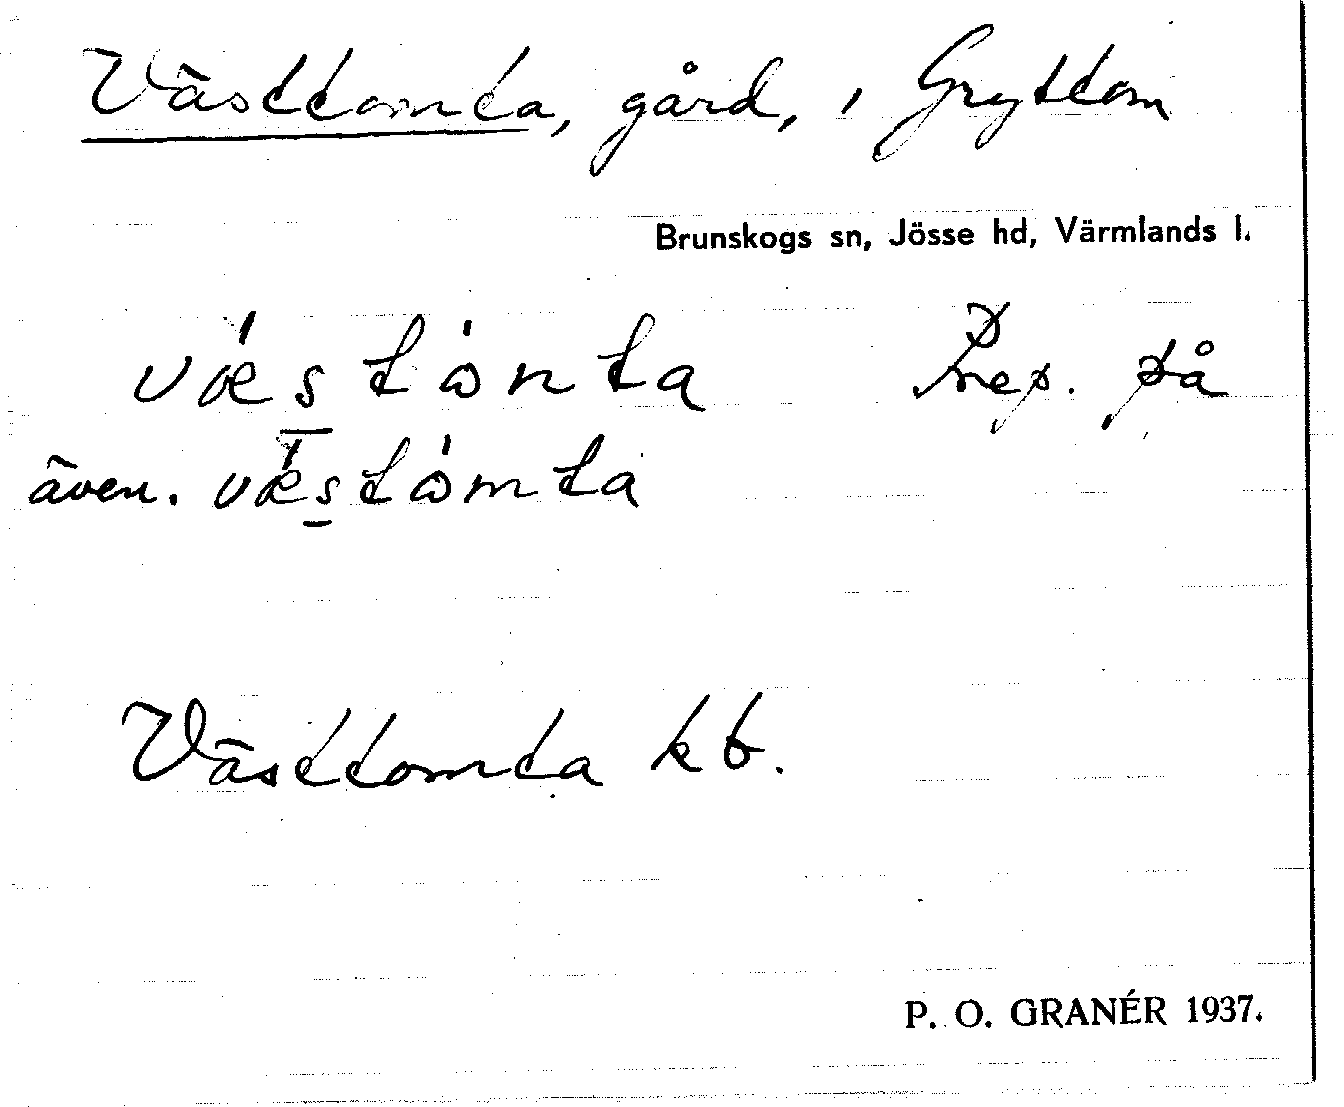 Västtomta, gård, i Gryttom
Brunskogs sn, Jösse hd, Värmlands l.
væ´s̲tω`nta Prep. på
även. væ´s̲tω`mta
Västtomta kb.
P. O. GRANÉR 1937.